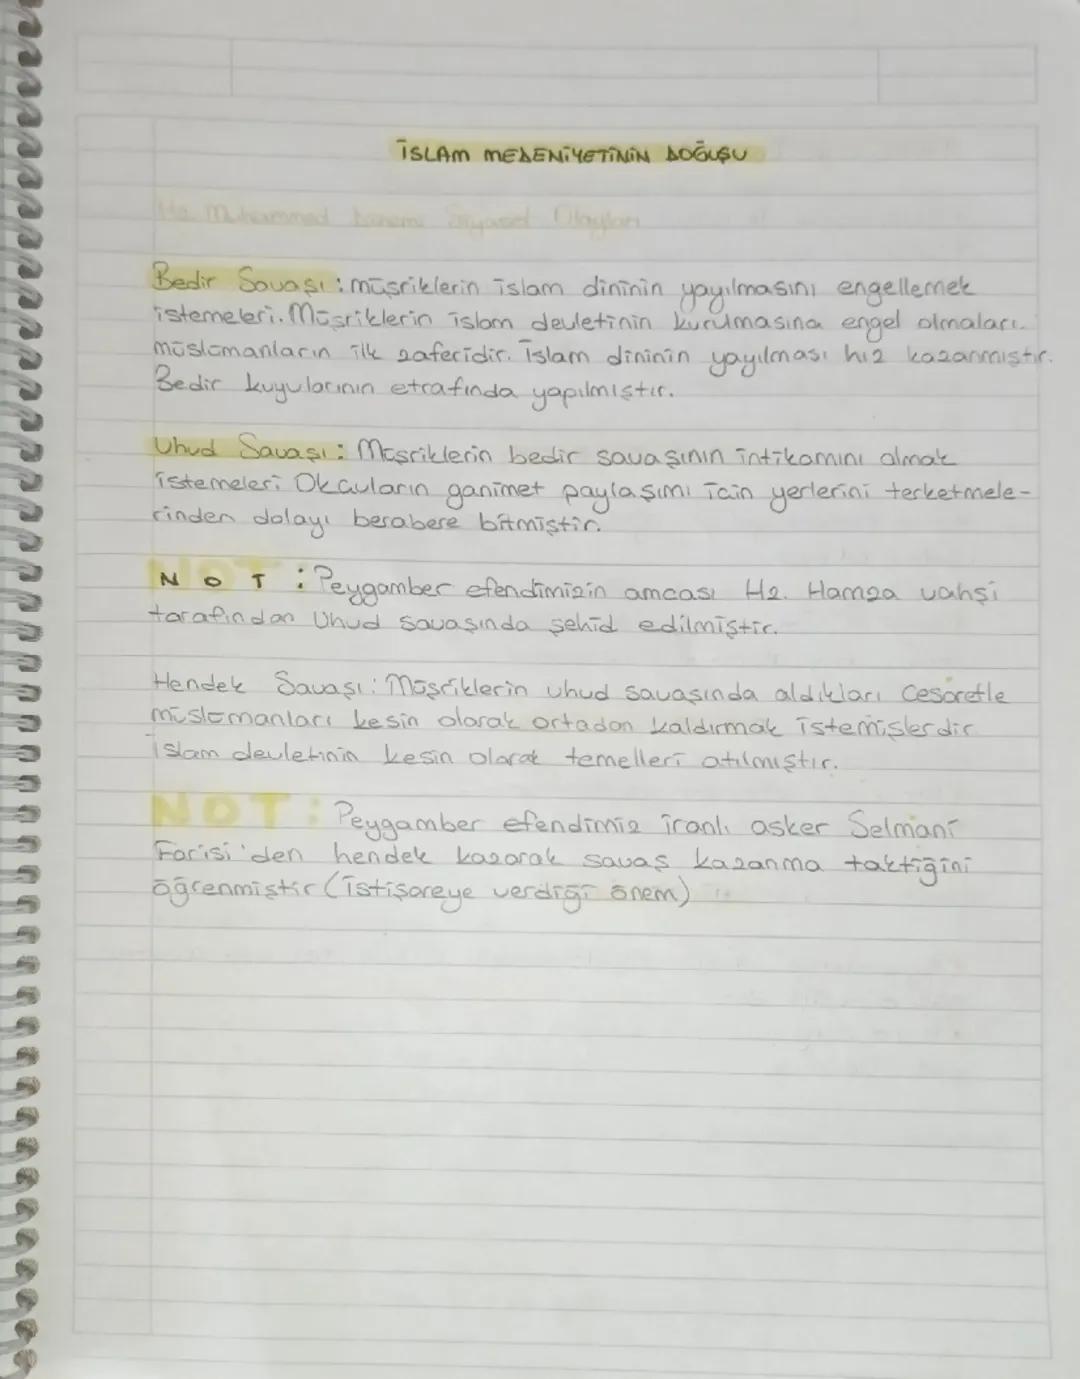 İSLAM MEDENİYETİNİN DOĞUŞU
Hz. Muhammed Dönemi Siyaset Olayları
Bedir Savaşı : müşriklerin islam dininin yayılmasını engellemek
istemeleri. Müşriklerin islam devletinin kurulmasına engel olmaları.
müslümanların ilk zaferidir. İslam dininin yayılması hız kazanmıştır.
Bedir kuyularının etrafında yapılmıştır.
Uhud Savaşı : Müşriklerin bedir savaşının intikamını almak
istemeleri Okçuların ganimet paylaşımı için yerlerini terketmele-
rinden dolayı berabere bitmiştir.
NOT : Peygamber efendimizin amcası Hz. Hamza vahşi
tarafından Uhud savaşında şehid edilmiştir.
Hendek Savaşı : Müşriklerin uhud savaşında aldıkları Cesaretle
müslümanları kesin olarak ortadan kaldırmak istemişlerdir
İslam devletinin kesin olarak temelleri atılmıştır.
NOT : Peygamber efendimiz iranlı asker Selmani
Farisi'den hendek kazarak savaş kazanma taktiğini
öğrenmiştir (istişareye verdiği önem)